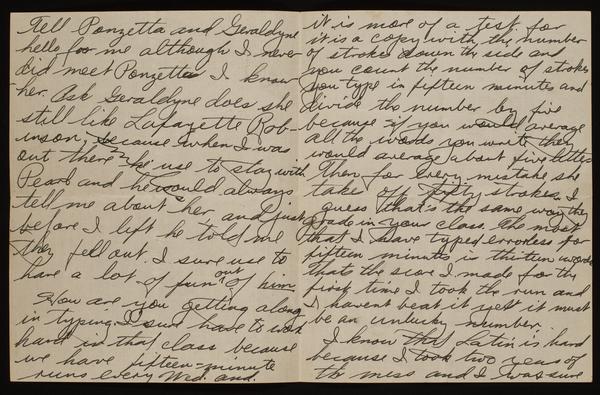 Tell Ponzetta and Geraldyne
hello for me although I never
did meet Ponzetta I know
her. Ask Geraldyne does she
still like Lafayette Rob-
inson, because when I was
out there he use to stay with
Pearl and he would always
tell me about her, and just
before I left he told me
they fell out. I sure use to
have a lot of fun out of him.
How are you getting along
in typing. I sure have to work
hard in that class because
we have fifteen-minute
runs every Wed. and.
it is more of a test for
it is a copy with the number
of strokes down the side and
you count the number of strokes
you type in fifteen minutes and
divide the number by five
because if you would average
all the words you write they
would average about five letters
Then for every mistake she
takes off fifty strokes. I
guess that's the same way they
grade in your class. The most
that I have typed errorless for
fifteen minutes is thirteen words
thats the score I made for the
first time I took the run and
I havent beat it yet it must
be an unlucky number.
I know that Latin is hard
because I took two years of
the mess and I was sure